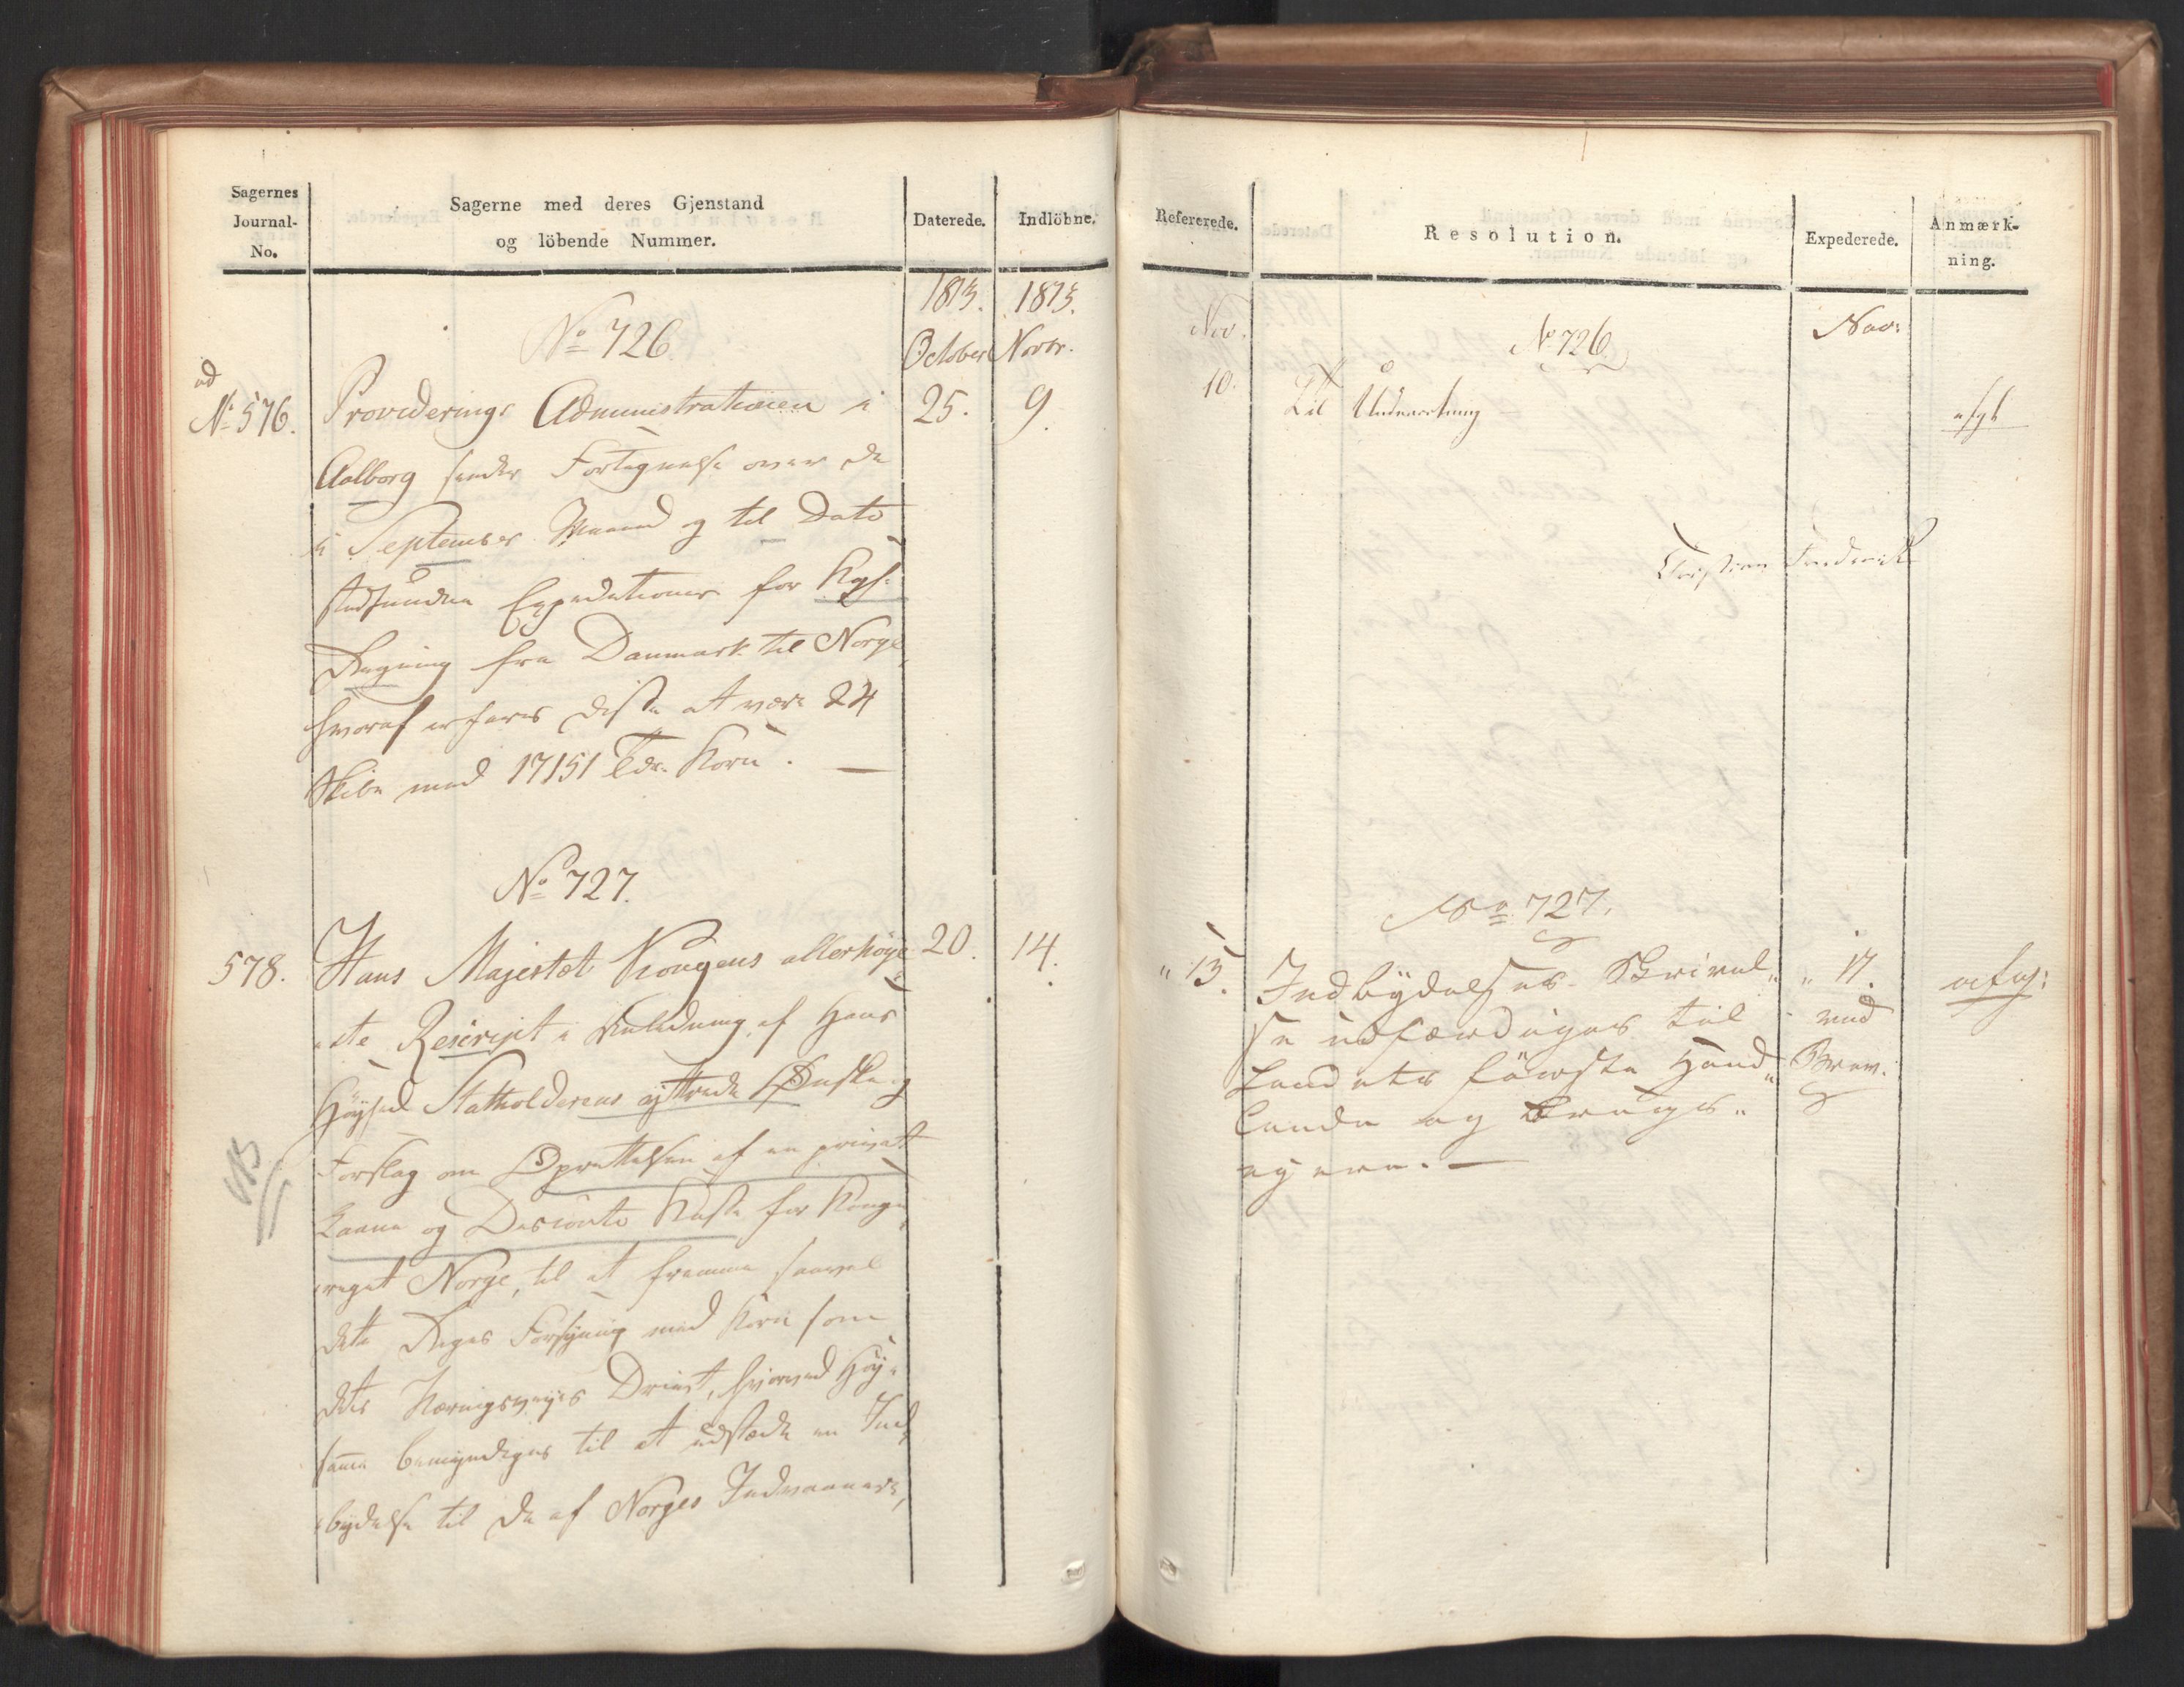 Sagernes
Journal-
No.
Sagerne med deres Gjenstand
og löbende Nummer.
Daterede.
Indlöbne.
1813.
1813.
No 726.
October
Novbr.
ad
No 576.
Provederings Administrationen i
25.
9.
Aalborg sender Fortegnelse over de
i September Maaned og til Dato
stedfundne Expeditioner for Kgl:
Regning fra Danmark til Norge,
hvoraf erfares disse at være 24
Skibe med 17151 Tdr. Korn. —
No 727.
578.
Hans Majestæt Kongens allerhöye
20.
14.
ste Rescript i Anledning af Hans
Höyhed Statholderens yttrede Ønske og
NB
Forslag om Oprettelsen af en privat
Laane og Disconto Kasse for Konge
riget Norge, til at fremme saavel
dette Riges Forsyning med Korn som
dets Næringsveyes Drivt, hvorved Höy-
samme bemyndiges til at udstæde en Ind
bydelse til de af Norges Indvaanere,
Refererede.
Resolution.
Expederede.
Anmærk-
ning.
Nov.
No 726
Nov:
10.
Til Underretning
afgl
Christian Frederik
No 727.
" 15.
Indbydelses Skrivel„
" 17.
afg:
se udfærdiges til
med
Landets förste Hand„
Brev.
lende og Brugs„
eyere. —